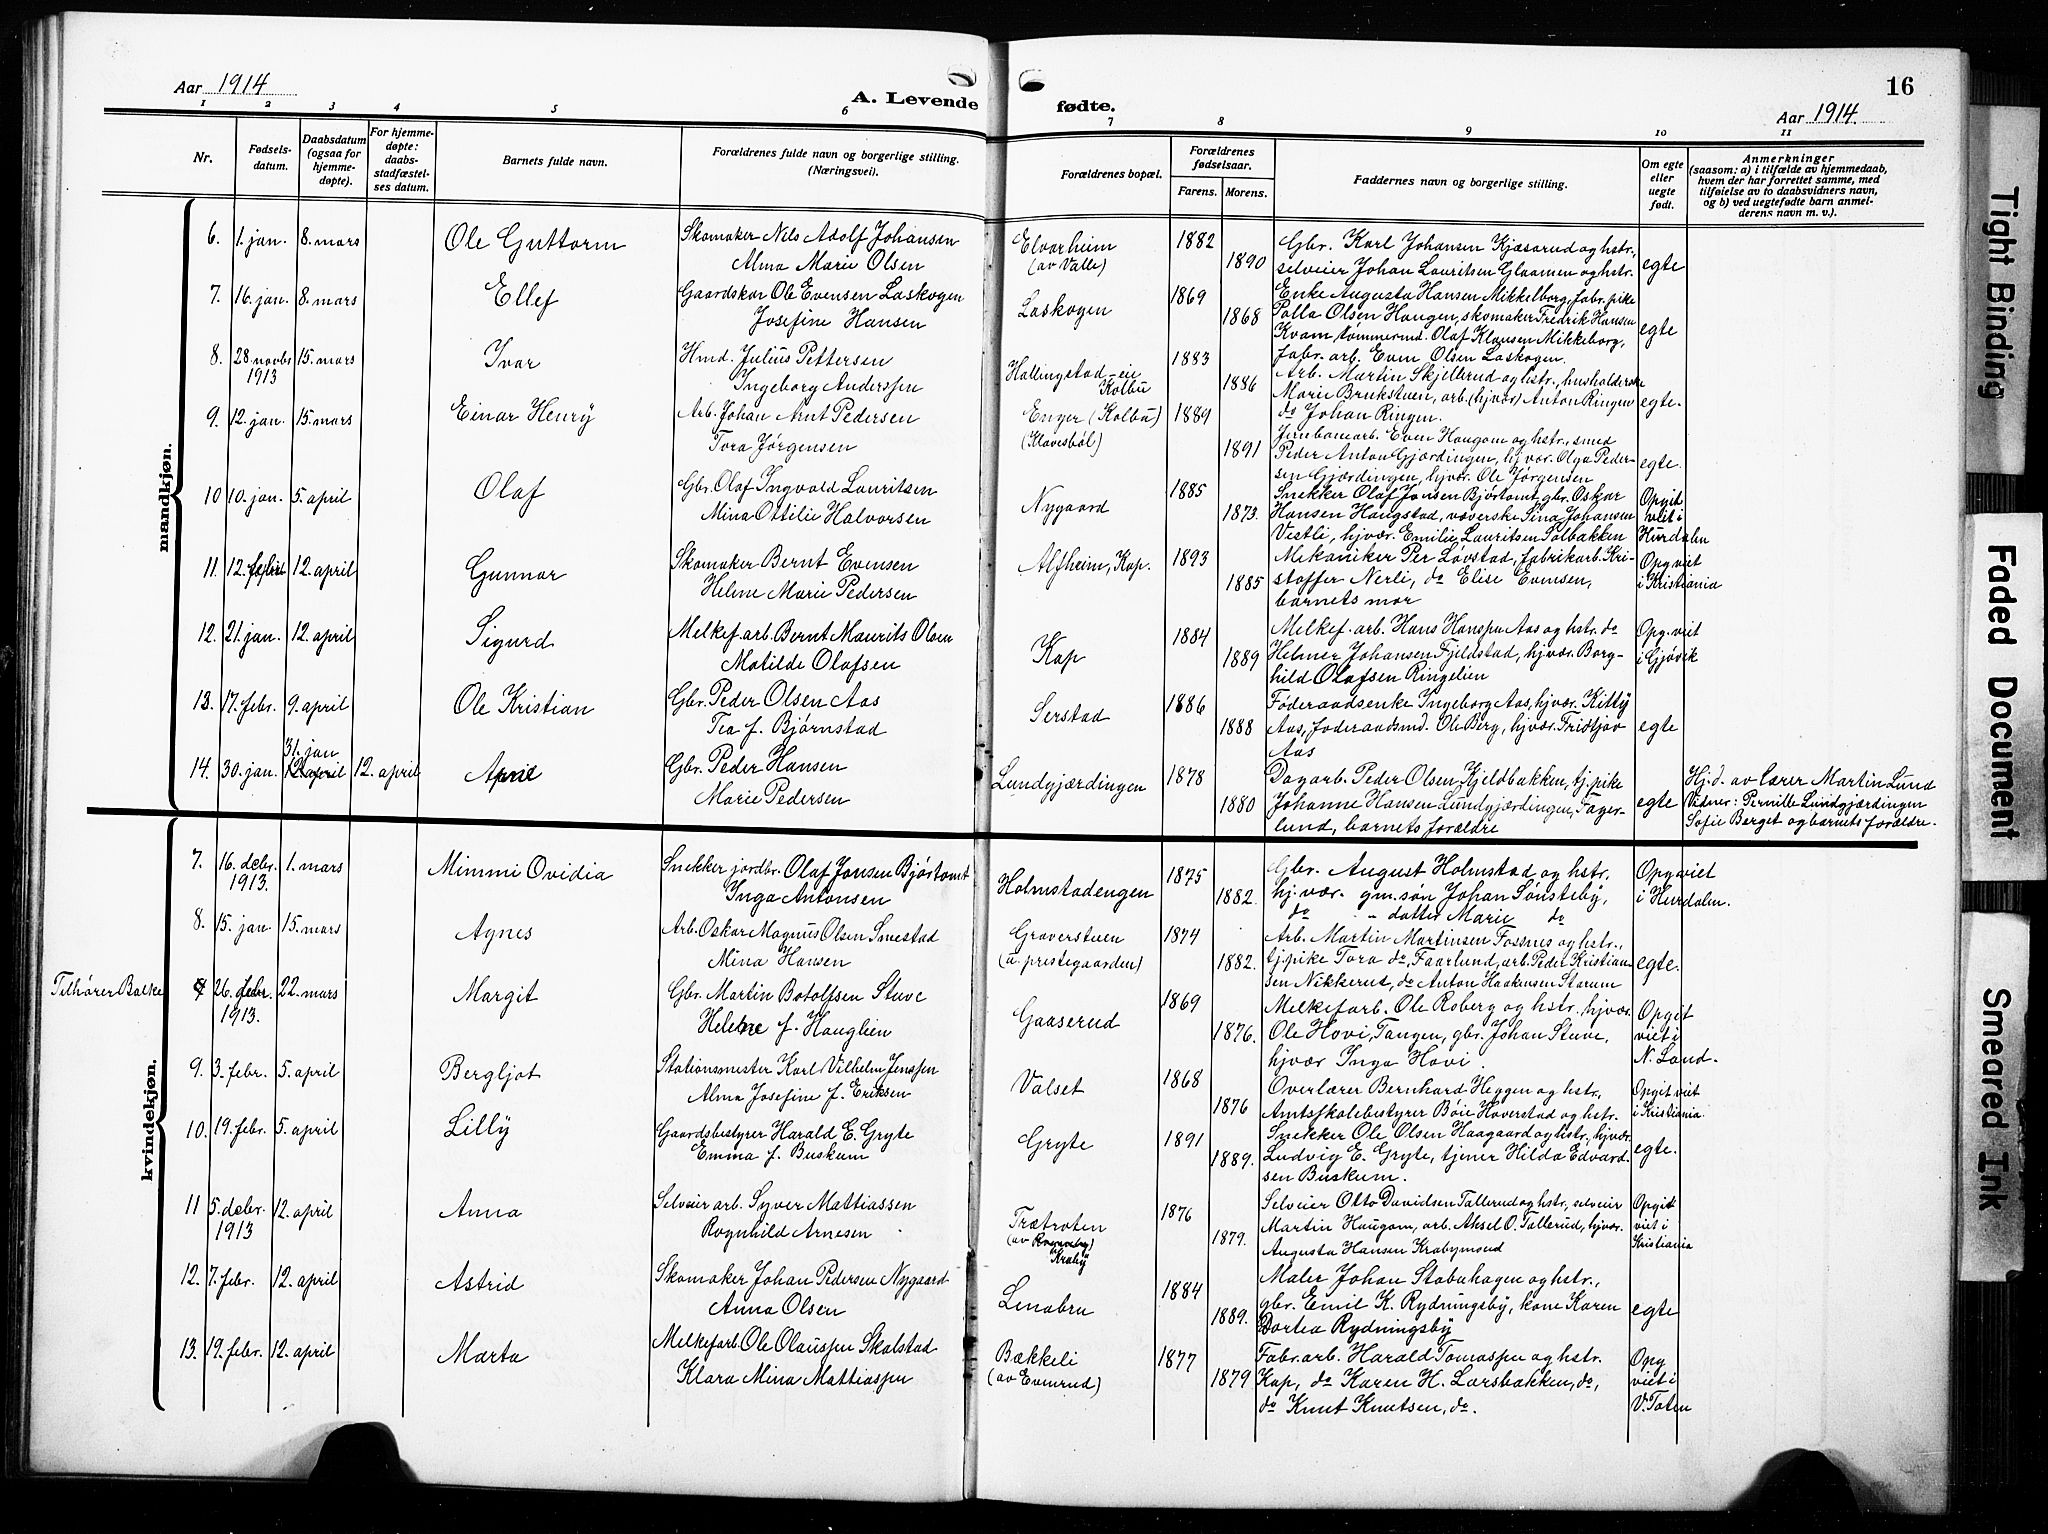 Aar 1914
A. Levende
fødte.
16
Aar 1914.
1 2 3 4 5 6 7 8 9 10 11
Nr.
Fødsels-
datum.
Daabsdatum
(ogsaa for
hjemme-
døpte).
For hjemme-
døpte:
daabs-
stadfæstel-
ses datum.
Barnets fulde navn.
Forældrenes fulde navn og borgerlige stilling.
(Næringsvei).
Forældrenes bopæl.
Forældrenes
fødselsaar.
Farens. Morens.
Faddernes navn og borgerlige stilling.
Om egte
eller
uegte
født.
Anmerkninger
(saasom: a) i tilfælde av hjemmedaab,
hvem der har forrettet samme, med
tilføielse av to daabsvidners navn,
og b) ved uegtefødte barn anmel-
derens navn m. v.).
mandkjøn.
6. 1. jan. 8. mars Ole Guttorm Skomaker Nils Adolf Johansen Elvarheim 1882 Gbr. Karl Johansen Kjæsarud og hstr.,
Alma Marie Olsen (av Valle) 1890 selveier Johan Lauritsen Glaamen og hstr. egte
7. 16. jan. 8. mars Ellef Gaardskar Ole Evensen Laskogen Laskogen 1869 Enke Augusta Hansen Mikkelborg, fabr. pike
Josefine Hansen 1868 Palla Olsen Haugen, skomaker Fredrik Hansen egte
Kvam, tømmermd. Olaf Klausen Mikkelborg,
8. 28 novbr 15. mars Ivar Hmd. Julius Pettersen 1883 fabr. arb. Even Olsen Laskogen.
1913 Ingeborg Anderssen Hallingstad-eie Kolbu 1886 Arb. Martin Skjellerud og hstr., husholderske
Marie Brukstuen, arb. (hjvær) Anton Ringen egte.
9. 12. jan. 15. mars Einar Henry Arb. Johan Arnt Pedersen Enger (Kolbu) 1889 do Johan Ringen.
Tora Jørgensen (Klavesbøl) 1891 Jernbanearb. Even Haugom og hstr., smed
Peder Anton Gjærdingen, hjvær. Olga Peder-
sen Gjærdingen, hjvær. Ole Jørgensen egte.
10 10. jan. 5. april Olaf Gbr. Olaf Ingvald Lauritsen Nygaard 1885 Snekker Olaf Jonsen Bjørtomt, gbr. Oskar Opgit
Mina Ottilie Halvorsen 1873. Hansen Haugstad, væverske Sina Johansen viet i
Vestli, hjvær. Emilie Lauritsen Polbakken Hurdalen
11. 12. febr. 12. april Gunnar Skomaker Bernt Evensen Alfheim, Kap. 1893 Mekaniker Per Løvstad, fabrikarb. Kri- Opg viet
Helene Marie Pedersen 1885 stoffer Nerli, do Elise Evensen, i Kristiania
barnets mor
12. 21. jan. 12. april Sigurd Melkef. arb. Bernt Maurits Olsen Kap 1884 Melkef. arb. Hans Hanssen Aas og hstr. do Opg. viet
Matilde Olafsen 1889 Helmer Johansen Fjeldstad, hjvær. Borg- i Gjøvik
hild Olafsen Ringelien
13. 17. febr. 9. april Ole Kristian Gbr. Peder Olsen Aas Serstad 1886 Føderaadsenke Ingeborg Aas, hjvær. Kitty
Tea f. Bjørnstad 1888 Aas, føderaadsmd. Ole Berg, hjvær. Fridtjov egte
Aas
31. jan
14. 30. jan. 12. april 12. april Arne Gbr. Peder Hansen Lundgjærdingen 1878 Dagarb. Peder Olsen Kjeldbakken, tj. pike Hj.d. av lærer Martin Lund
Marie Pedersen 1880 Johanne Hansen Lundgjærdingen, Fager- egte Vidner: Pernille Lundgjærdingen
lund, barnets forældre Sofie Berget og barnets forældre.
kvindekjøn.
7. 16. debr. 1. mars Mimmi Ovidia Snekker jordbr. Olaf Jonsen Bjørtomt Holmstadengen 1875 Gbr. August Holmstad og hstr. Opg viet
1913. Inga Antonsen 1882. hj. vær. gm. søn Johan Sønsteby, i Hurdalen.
do - datter Marie do
8. 15. jan. 15. mars Agnes Arb. Oskar Magnus Olsen Smestad Graverstuen 1874 Arb. Martin Martinsen Fossnes og hstr.,
Mina Hansen (u. prestegaarden) 1882. tj. pike Tora do, Faarlund, arb. Peder Kristian- egte.
sen Nikkerud, do Anton Haakensen Starum
Tilhører Balke 26. debr 22. mars Margit Gbr. Martin Botolfsen Stuve Gaaserud 1869 Melkefarb. Ole Roberg og hstr. hjvær. Opgit
1913. Helene f. Hauglien 1876. Ole Hovi, Tangen, gbr. Johan Stuve, viet i
hjvær Inga Hovi. N. Land.
9. 3. febr. 5. april Bergljot Stationsmester Karl Vilhelm Jenssen Valset 1868 Overlærer Bernhard Heggen og hstr., Opgit viet
Alma Josefine f. Eriksen 1876 Amtsskolebestyrer Bøie Haverstad og hstr. i Kristiania
10. 19. febr. 5. april Lilly Gaardsbestyrer Harald E. Gryte Gryte 1891 Snekker Ole Olsen Haagaard og hstr., hjvær.
Emma f. Buskum 1889. Ludvig E. Gryte, tjener Hilda Edvard- egte.
sen Buskum.
11 5. debr. 12. april Anna Selveier arb. Syver Mattiassen Trætroten 1876 Selveier Otto Davidsen Tallerud og hstr., selveier Opgit
1913 Ragnhild Arnesen (av Kraby) 1879. Martin Haugom, arb. Aksel O. Tallerud, hjvær. viet i
Augusta Hansen Krabymoend Kristiania
12. 7. febr. 12. april Astrid Skomaker Johan Pedersen Nygaard Lenabru 1884 Maler Johan Stabuhagen og hstr.,
Anna Olsen 1889. gbr. Emil K. Rydningsby, kone Karen egte
Dortea Rydningsby
13. 19. febr. 12. april Marta Melkefarb. Ole Olaussen Skolstad Bækkeli 1877 Fabr. arb. Harald Tomassen og hstr. Opg
Klara Mina Mattiassen (av Evenrud) 1879 Kap, do Karen H. Larsbakken, do, viet i
do Knut Knutsen, do. V. Toten
Tight Binding
Faded Document
Smeared Ink